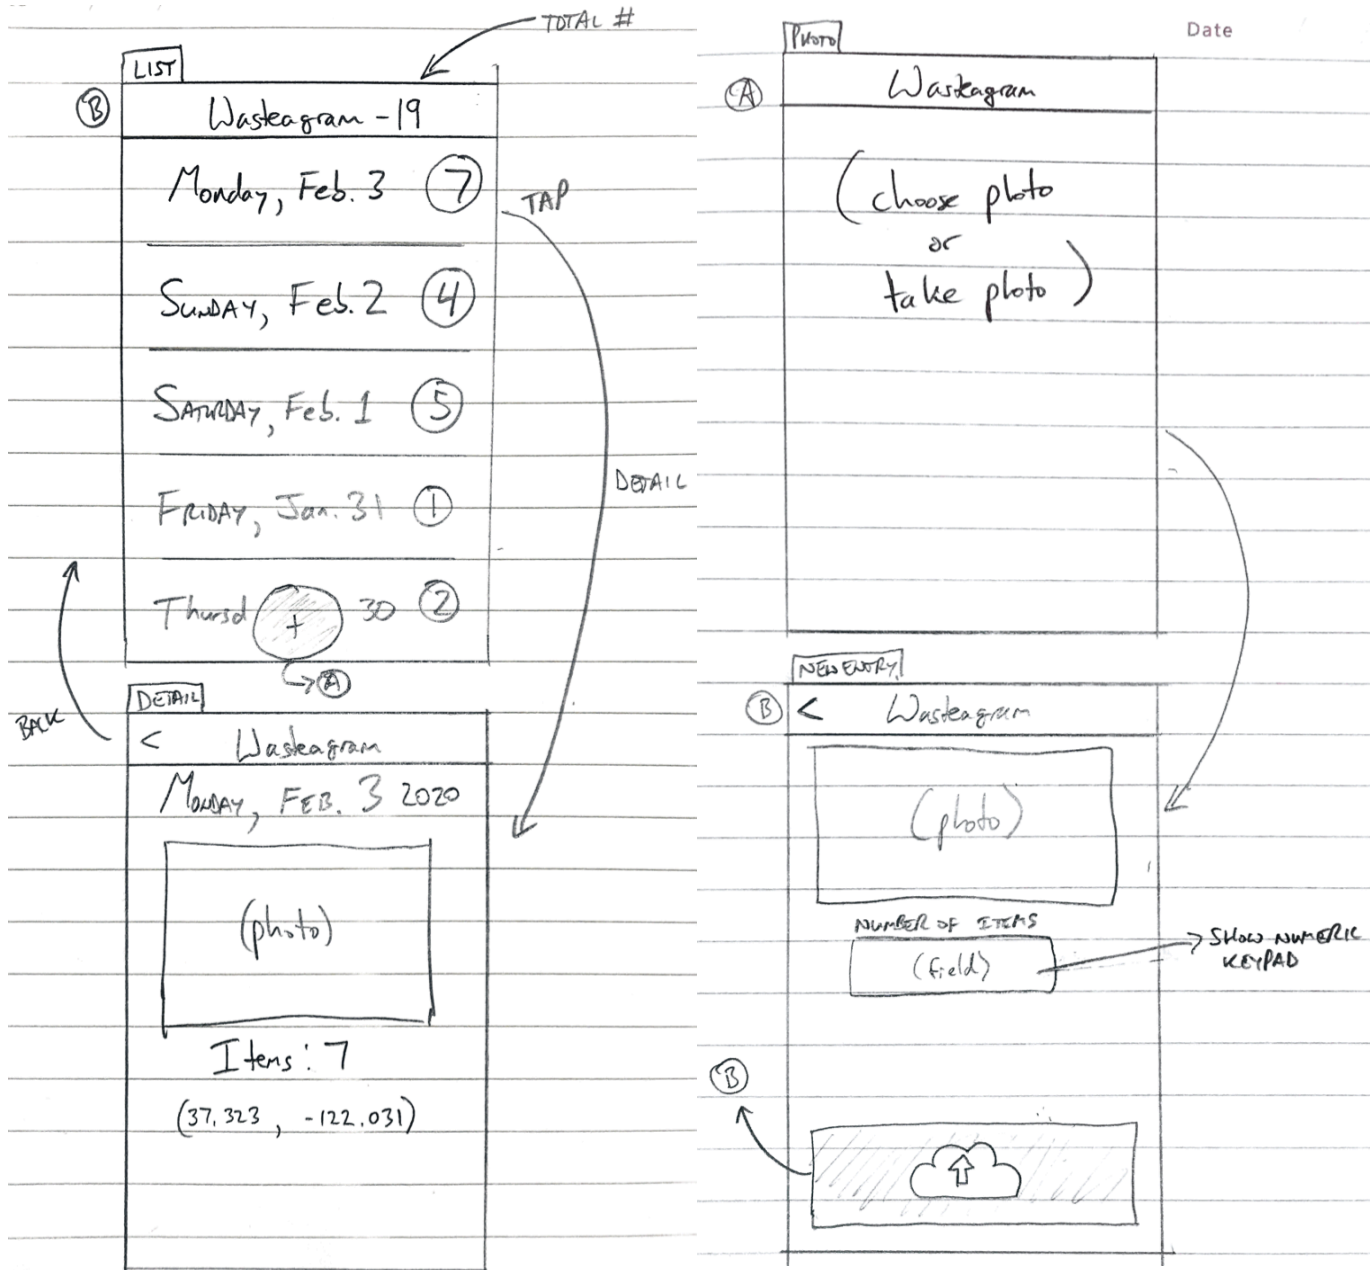 TOTAL #
LIST
B
Wasteagram - 19
Monday, Feb. 3 7
TAP
SUNDAY, Feb. 2 4
SATURDAY, Feb. 1 5
DETAIL
FRIDAY, Jan. 31 1
Thursd + 30 2
A
BACK
DETAIL
< Wasteagram
MONDAY, FEB. 3 2020
(photo)
Items: 7
(37.323, -122.031)
Date
PHOTO
A
Wasteagram
(choose photo
or
take photo)
NEW ENTRY
B < Wasteagram
(photo)
NUMBER OF ITEMS
(field)
SHOW NUMERIC
KEYPAD
B